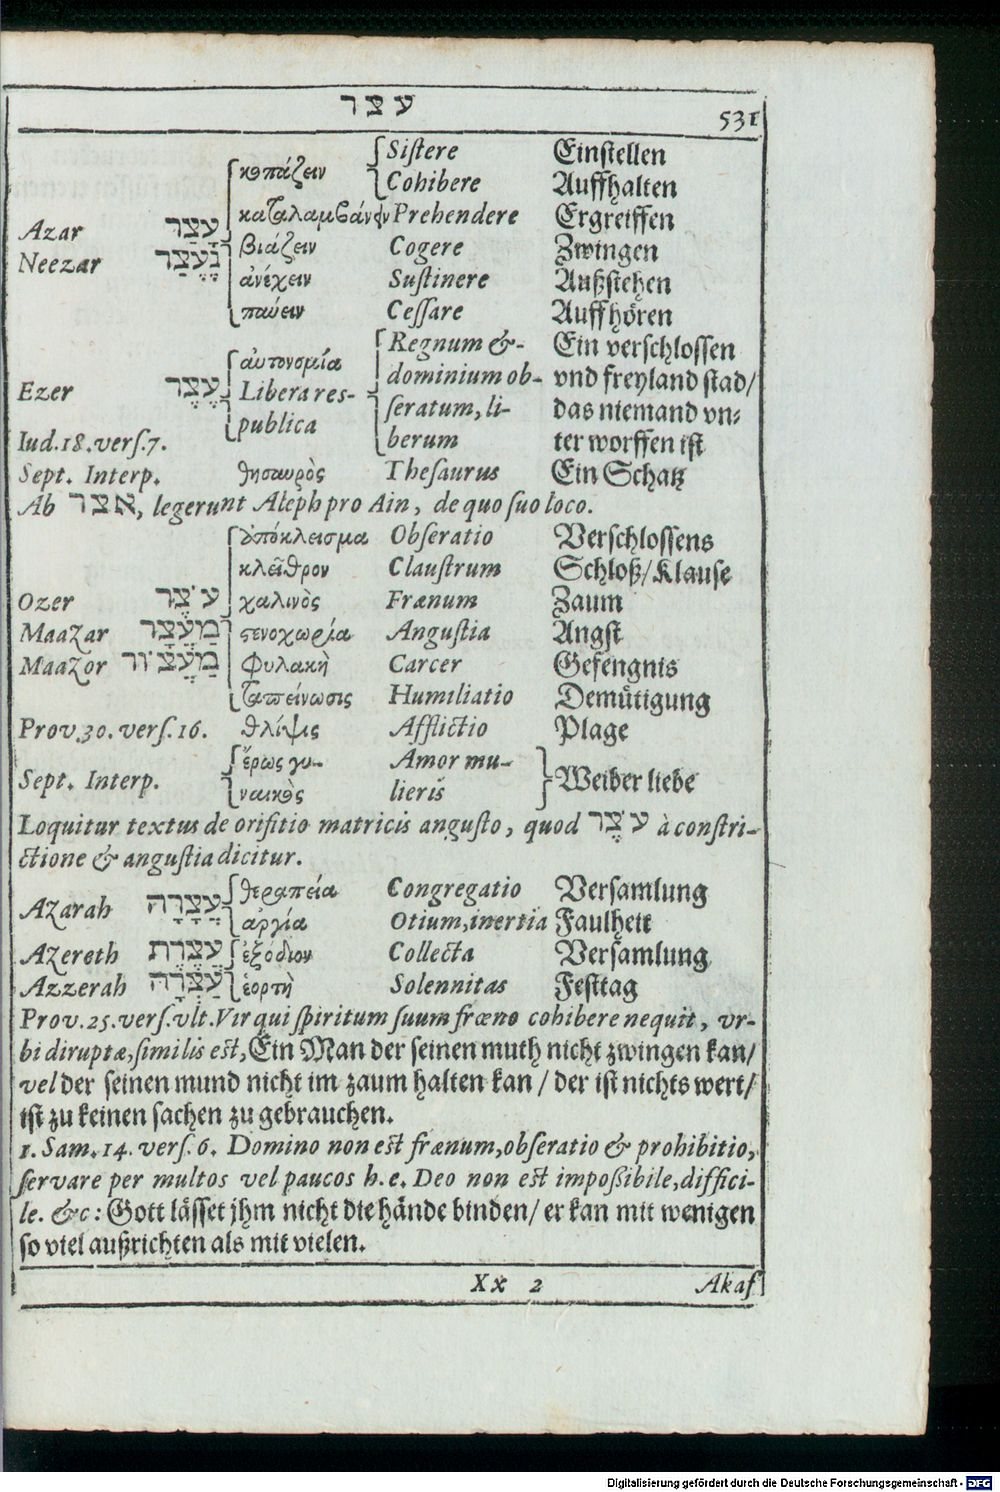 עצר
531
κοπάζειν Sistere Einstellen
Cohibere Auffhalten
καταλαμβάνειν Prehendere Ergreiffen
Azar עָצַר
βιάζειν Cogere Zwingen
Neezar נֶעֱצַר
ἀνέχειν Sustinere Außstehen
παύειν Cessare Auffhören
αὐτονομία Regnum &- Ein verschlossen
Ezer עֶצֶר Libera res- dominium ob- vnd freyland stad/
publica seratum, li- das niemand vn-
Iud.18.vers.7. berum ter worffen ist
Sept. Interp. θησαυρὸς Thesaurus Ein Schatz
Ab אצר, legerunt Aleph pro Ain, de quo suo loco.
ἀπόκλεισμα Obseratio Verschlossens
κλεῖθρον Claustrum Schloß/Klause
Ozer עֹצֶר χαλινὸς Frænum Zaum
Maazar מַעְצָר στενοχωρία Angustia Angst
Maazor מַעֲצוֹר Φυλακὴ Carcer Gefengnis
ταπείνωσις Humiliatio Demütigung
Prov.30.vers.16. θλίψις Afflictio Plage
Sept. Interp. ἔρως γυ- Amor mu- Weiber liebe
ναικὸς lieris
Loquitur textus de orifitio matricis angusto, quod עֹצֶר à constri-
ctione & angustia dicitur.
Azarah עֲצָרָה θεραπεία Congregatio Versamlung
ἀργία Otium,inertia Faulheit
Azereth עֲצֶרֶת ἐξόδιον Collecta Versamlung
Azzerah עַצְּרָה ἑορτὴ Solennitas Festtag
Prov.25.vers.vlt.Vir qui spiritum suum fræno cohibere nequit, vr-
bi diruptæ,similis est,Ein Man der seinen muth nicht zwingen kan/
vel der seinen mund nicht im zaum halten kan / der ist nichts wert/
ist zu keinen sachen zu gebrauchen.
1. Sam.14. vers.6. Domino non est frænum,obseratio & prohibitio,
servare per multos vel paucos h.e. Deo non est impoßibile,diffici-
le. &c: Gott lässet jhm nicht die hände binden/ er kan mit wenigen
so viel außrichten als mit vielen.
Xx 2 Akas
Digitalisierung gefördert durch die Deutsche Forschungsgemeinschaft - DFG